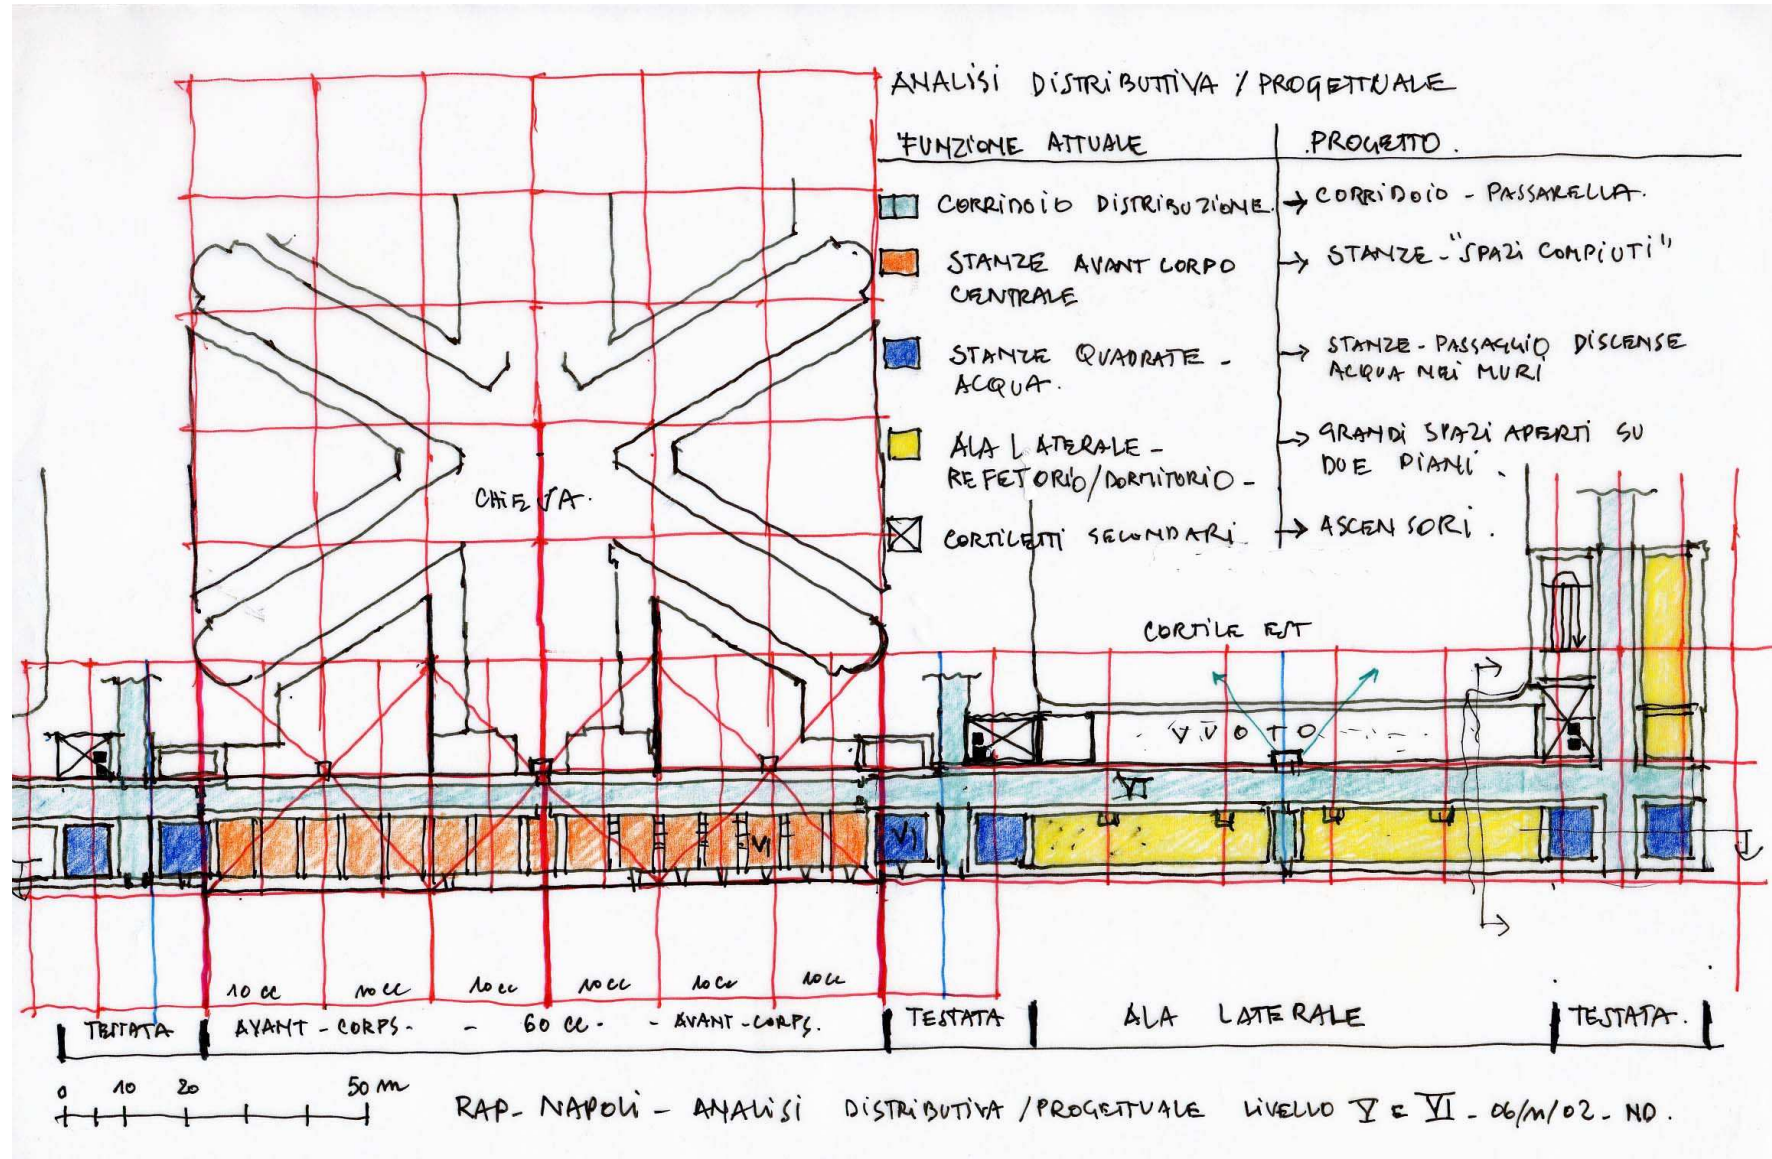 ANALISI DISTRIBUTTIVA / PROGETTUALE
FUNZIONE ATTUALE
PROGETTO.
CORRIDOIO DISTRIBUZIONE.
→ CORRIDOIO - PASSARELLA.
STANZE AVANT CORPO
CENTRALE
→ STANZE - "SPAZI COMPIUTI"
STANZE QUADRATE -
ACQUA.
→ STANZE - PASSAGGIO DISCENSE
ACQUA NEI MURI
ALA LATERALE -
REFETORIO/DORMITORIO -
→ GRANDI SPAZI APERTI SU
DUE PIANI.
CORTILETTI SECONDARI
→ ASCENSORI.
CHIESA.
CORTILE EST
VUOTO
VI
VI
VI
10 cc
10 cc
10 cc
10 cc
10 cc
10 cc
TESTATA
AVANT - CORPS. - 60 CC. - AVANT - CORPS.
TESTATA
ALA LATERALE
TESTATA.
0 10 20 50 m
RAP - NAPOLI - ANALISI DISTRIBUTIVA / PROGETTUALE LIVELLO V E VI - 06/11/02 - ND.